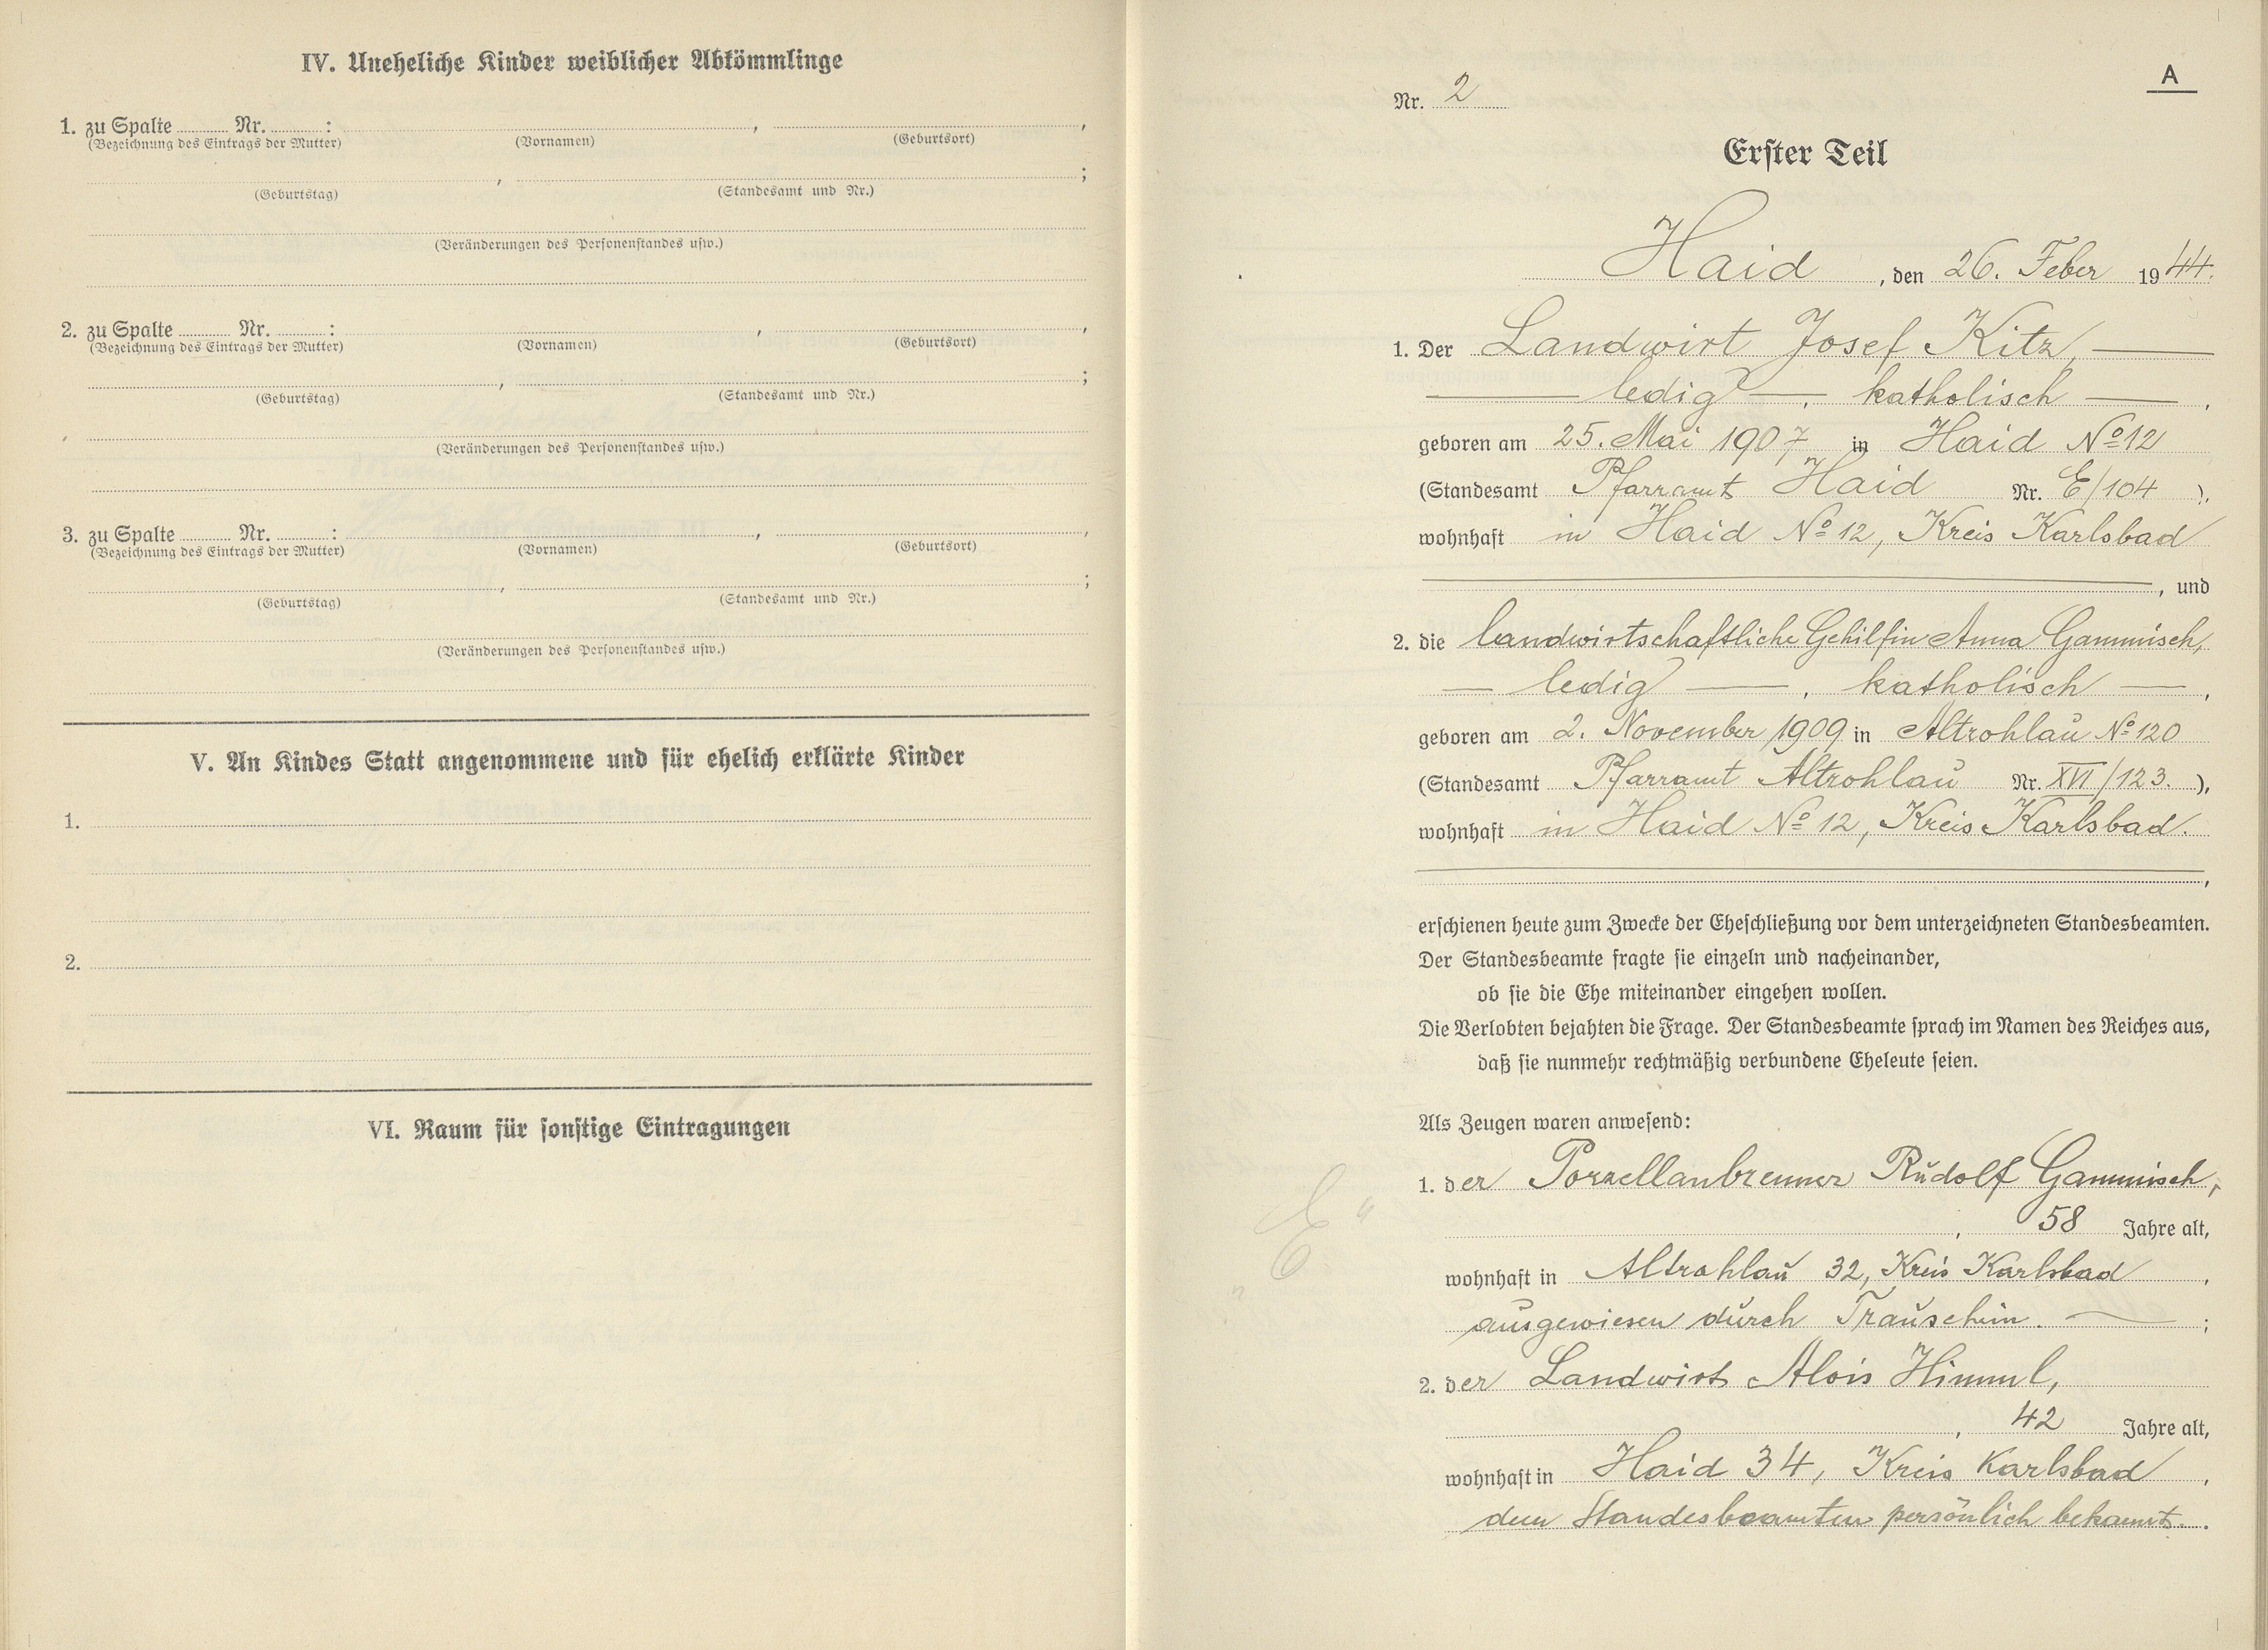 IV. Uneheliche Kinder weiblicher Abkömmlinge
1. zu Spalte ........ Nr. ........ : ........ , ........ ,
(Bezeichnung des Eintrags der Mutter) (Vornamen) (Geburtsort)
........ , ........ ;
(Geburtstag) (Standesamt und Nr.)
(Veränderungen des Personenstandes usw.)
2. zu Spalte ........ Nr. ........ : ........ , ........ ,
(Bezeichnung des Eintrags der Mutter) (Vornamen) (Geburtsort)
........ , ........ ;
(Geburtstag) (Standesamt und Nr.)
(Veränderungen des Personenstandes usw.)
3. zu Spalte ........ Nr. ........ : ........ , ........ ,
(Bezeichnung des Eintrags der Mutter) (Vornamen) (Geburtsort)
........ , ........ ;
(Geburtstag) (Standesamt und Nr.)
(Veränderungen des Personenstandes usw.)
V. An Kindes Statt angenommene und für ehelich erklärte Kinder
1.
2.
VI. Raum für sonstige Eintragungen
A
Nr. 2
Erster Teil
Haid , den 26. Feber 1944.
1. Der Landwirt Josef Kitz, —
— ledig —, katholisch — ,
geboren am 25. Mai 1907 in Haid № 12
(Standesamt Pfarramt Haid Nr. E/104 ),
wohnhaft in Haid № 12, Kreis Karlsbad
, und
2. die landwirtschaftliche Gehilfin Anna Gammisch,
— ledig — , katholisch — ,
geboren am 2. November 1909 in Altrohlau № 120
(Standesamt Pfarramt Altrohlau Nr. XVI/123. ),
wohnhaft in Haid № 12, Kreis Karlsbad.
,
erschienen heute zum Zwecke der Eheschließung vor dem unterzeichneten Standesbeamten.
Der Standesbeamte fragte sie einzeln und nacheinander,
ob sie die Ehe miteinander eingehen wollen.
Die Verlobten bejahten die Frage. Der Standesbeamte sprach im Namen des Reiches aus,
daß sie nunmehr rechtmäßig verbundene Eheleute seien.
Als Zeugen waren anwesend:
1. der Porzellanbrenner Rudolf Gammisch,
, 58 Jahre alt,
wohnhaft in Altrohlau 32, Kreis Karlsbad ,
ausgewiesen durch Trauschein. — ;
2. der Landwirt Alois Himml,
, 42 Jahre alt,
wohnhaft in Haid 34, Kreis Karlsbad ,
dem Standesbeamten persönlich bekannt. .